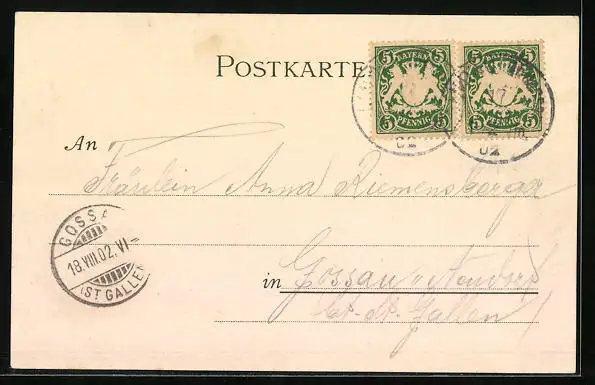 POSTKARTE
BAYERN
5 5
5 PFENNIG 5
BAYERN
5 5
5 PFENNIG 5
17
02
02
An
Fräulein Anna Riemensberger
GOSSA
18.VIII.02.VI
(ST GALLEN
in Gossau
Kt. St. Gallen